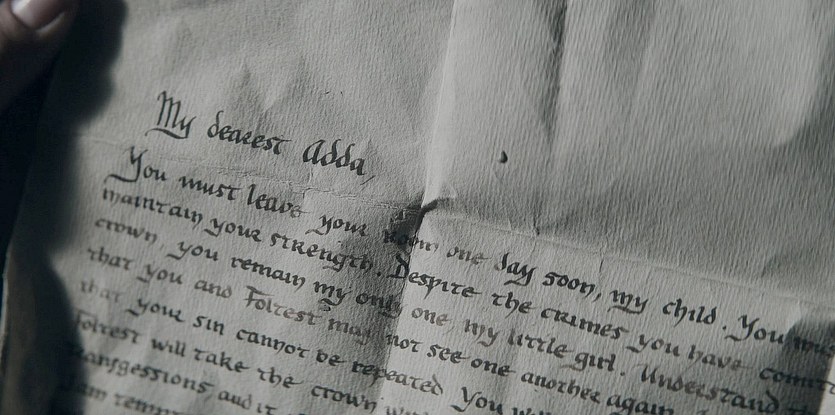 My dearest Adda,
You must leave your room one day soon, my child. You must
maintain your strength. Despite the crimes you have
crown, you remain my only one, my little girl. Understand
that you and Foltest may not see one another again
that your sin cannot be repeated You
Foltest will take the crown
transgessions and it